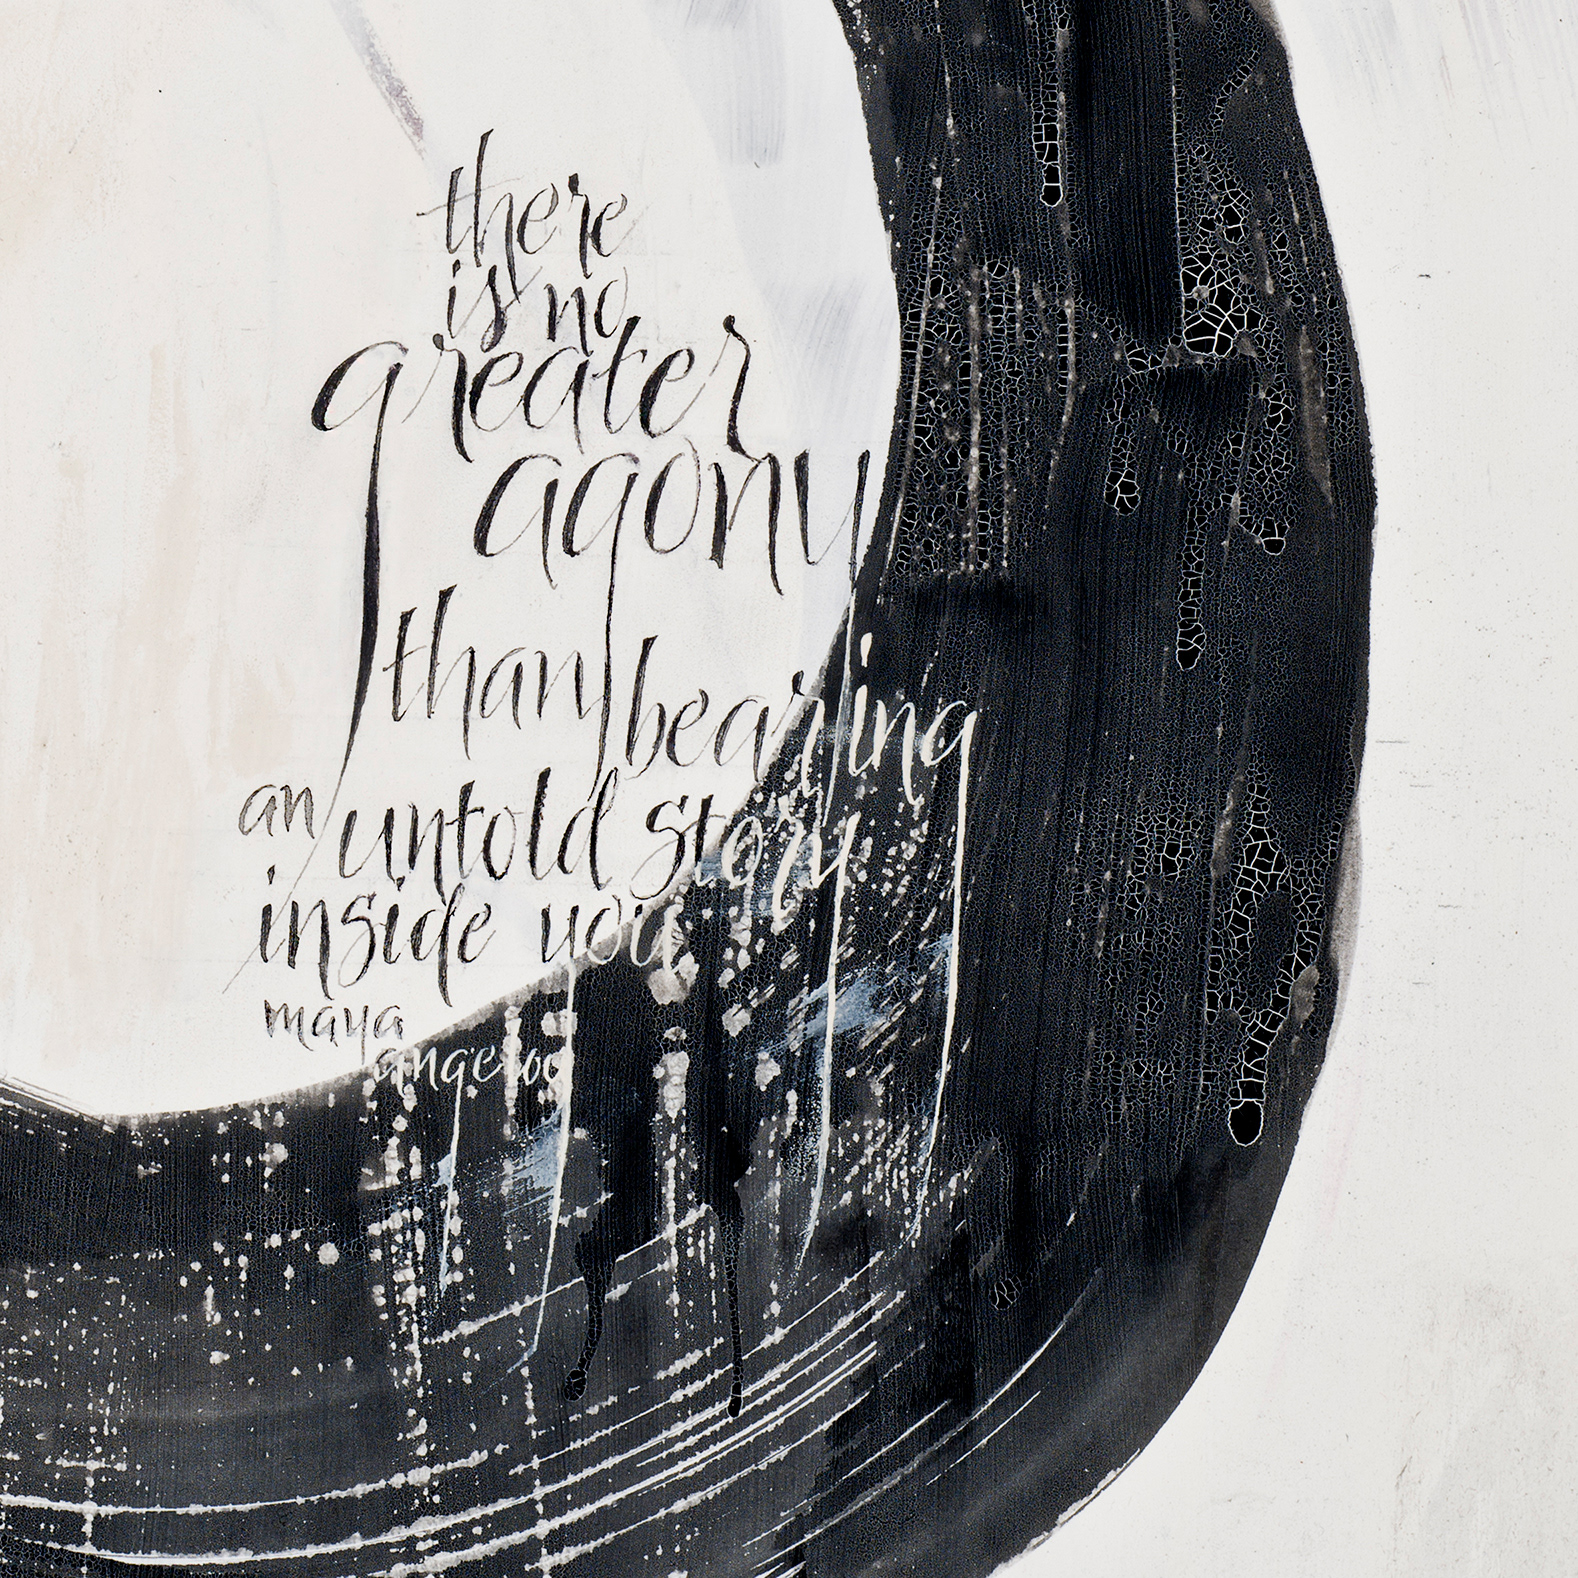 there
is no
greater
agony
than bearing
an untold story
inside you
maya
angelou